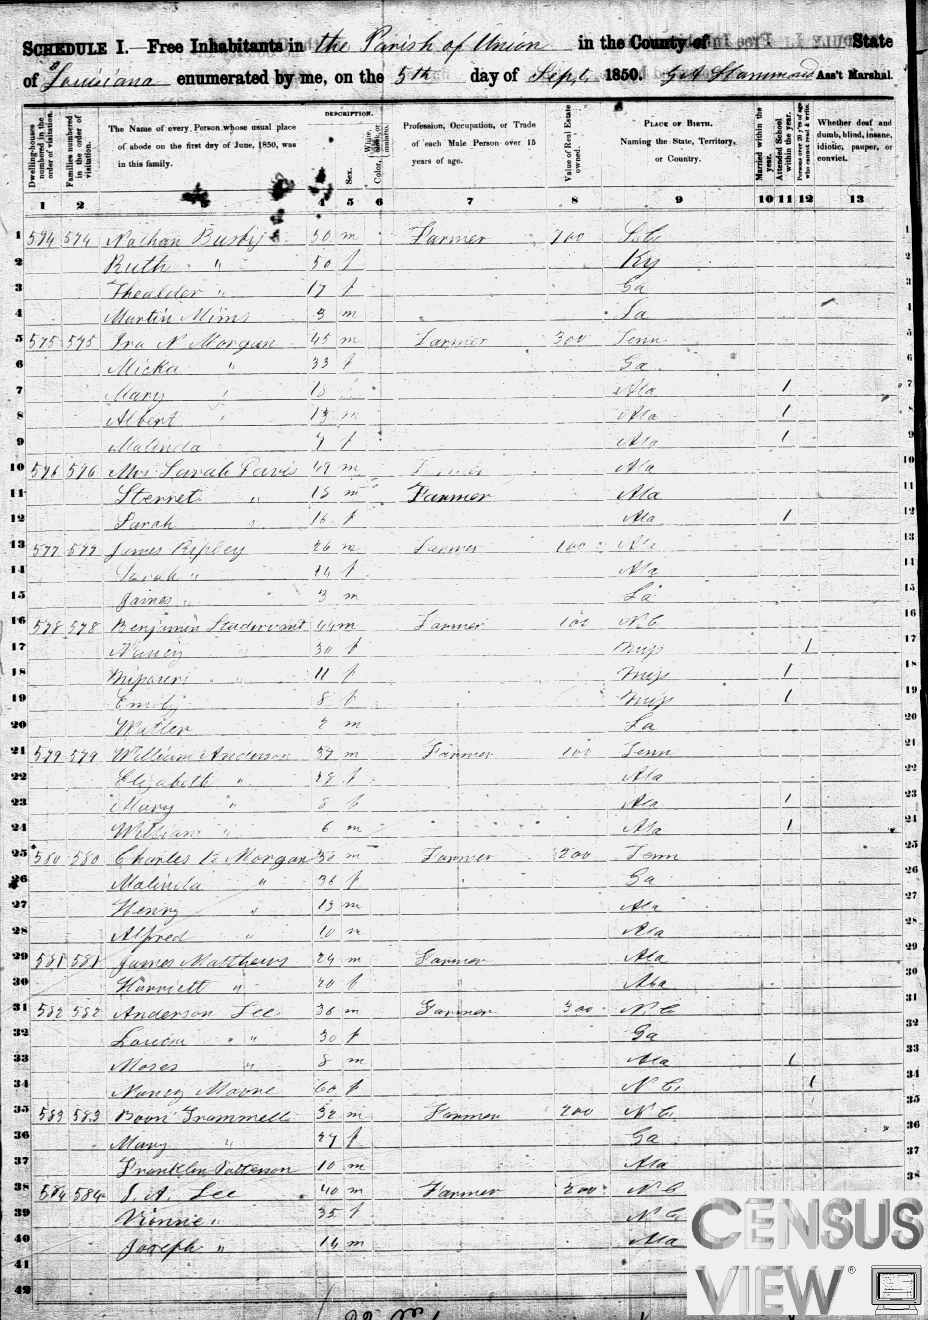 SCHEDULE I.—Free Inhabitants in the Parish of Union in the County of State
of Louisiana enumerated by me, on the 5th day of Sept. 1850. Ass't Marshal.
Dwelling-houses numbered in the order of visitation.
Families numbered in the order of visitation.
The Name of every Person whose usual place of abode on the first day of June, 1850, was in this family.
DESCRIPTION.
Sex.
Color,
Profession, Occupation, or Trade of each Male Person over 15 years of age.
Value of Real Estate owned.
PLACE OF BIRTH. Naming the State, Territory, or Country.
Married within the year.
Attended School within the year.
Persons over 20 y'rs of age who cannot read & write.
Whether deaf and dumb, blind, insane, idiotic, pauper, or convict.
1 2 3 4 5 6 7 8 9 10 11 12 13
1 574 574 Nathan Busby 50 m Farmer 700 S.C. 1
2 Ruth " 50 f Ky 2
3 17 f Ga 3
4 Martin Mims 3 m La 4
5 575 575 Ira N Morgan 45 m Farmer 300 Tenn 5
6 Micka " 33 f Ga 6
7 Mary " 18 Ala 1 7
8 Albert " 13 m Ala 1 8
9 Malinda 7 f Ala 1 9
10 576 576 Mrs Sarah Davis 49 m Ala 10
11 Sterret " 18 m Farmer Ala 11
12 Sarah " 16 f Ala 1 12
13 577 577 James Ripley 26 m Farmer 100 Ala 13
14 Sarah " 24 f Ala 14
15 James " 3 m La 15
16 578 578 Benjamin 44 m Farmer 100 N.C. 16
17 Nancy 30 f Misp 1 17
18 11 f Misp 1 18
19 Emily 8 f Misp 1 19
20 2 m La 20
21 579 579 William Anderson 37 m Farmer 100 Tenn 21
22 Elizabeth " 28 f Ala 22
23 Mary " 8 f Ala 1 23
24 William " 6 m Ala 1 24
25 580 580 Charles Morgan m Farmer 200 Tenn 25
26 Malinda " 36 f Ga 26
27 Henry " 13 m Ala 27
28 Alfred " 10 m Ala 28
29 581 581 James Matthews 24 m Farmer Ala 29
30 Harriett " 20 f Ala 30
31 582 582 Anderson Lee 36 m Farmer 300 N.C. 31
32 " 30 f Ga 32
33 Moses " 8 m Ala 1 33
34 Nancy Moore 60 f N.C. 1 34
35 583 583 Boon Trammell 32 m Farmer 200 N.C. 35
36 Mary " 27 f Ga 36
37 Franklin Patterson 10 m Ala 37
38 584 584 J. A. Lee 40 m Farmer 200 N.C. 38
39 " 35 f N.C.
40 Joseph " 14 m Ala
41
42
CENSUS
VIEW®